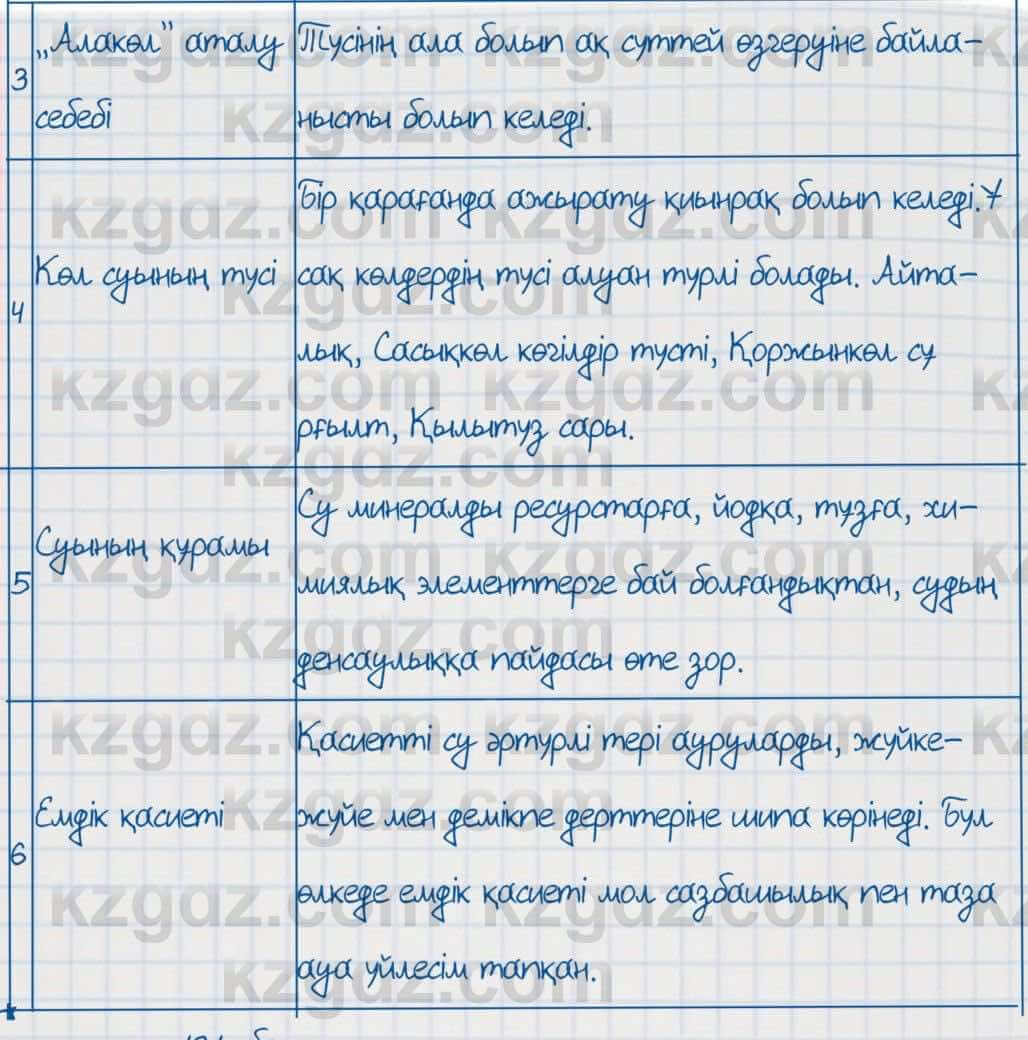 3 „Алакөл" аталу себебі
Түсінің ала болып ақ сүттей өзгеруіне байла-
нысты болып келеді.
4 Көл суының түсі
Бір қарағанда ажырату қиынрақ болып келеді. Ұ
сақ көлдердің түсі алуан түрлі болады. Айта-
лық, Сасықкөл көгілдір түсті, Қоржынкөл сұ
рғылт, Қылытуз сары.
5 Суының құрамы
Су минералды ресурстарға, йодқа, тұзға, хи-
миялық элементтерге бай болғандықтан, судың
денсаулыққа пайдасы өте зор.
6 Емдік қасиеті
Қасиетті су әртүрлі тері ауруларды, жүйке-
жүйе мен демікпе дерттеріне шипа көрінеді. Бұл
өлкеде емдік қасиеті мол сазбашылық пен таза
ауа үйлесім тапқан.
kzgdz.com